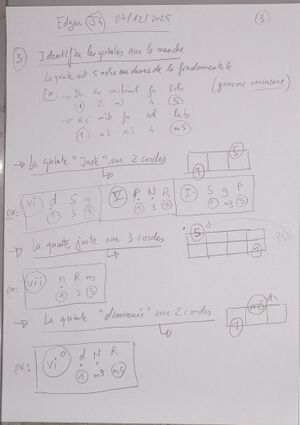 Edgar J4 07/12/2025 (3)
(5) Identifier les quintes sur le manche
La quinte est 5 notes au dessus de la fondamentale
Ex: → Do Re mi bémol fa Sol (gamme mineure)
1 2 m3 4 5
→ Ré mib fa sol lab
1 m2 m3 4 m5
→ La quinte "Juste" sur 2 cordes
5
1
ex: vi d S g V P N R I S g P
1 3 5 1 3 5 1 m3 5
→ La quinte juste sur 3 cordes
5
1
ex: vii n R m
1 3 5
→ La quinte "diminuée" sur 2 cordes
m5
1
ex: vi° d N R
1 m3 m5